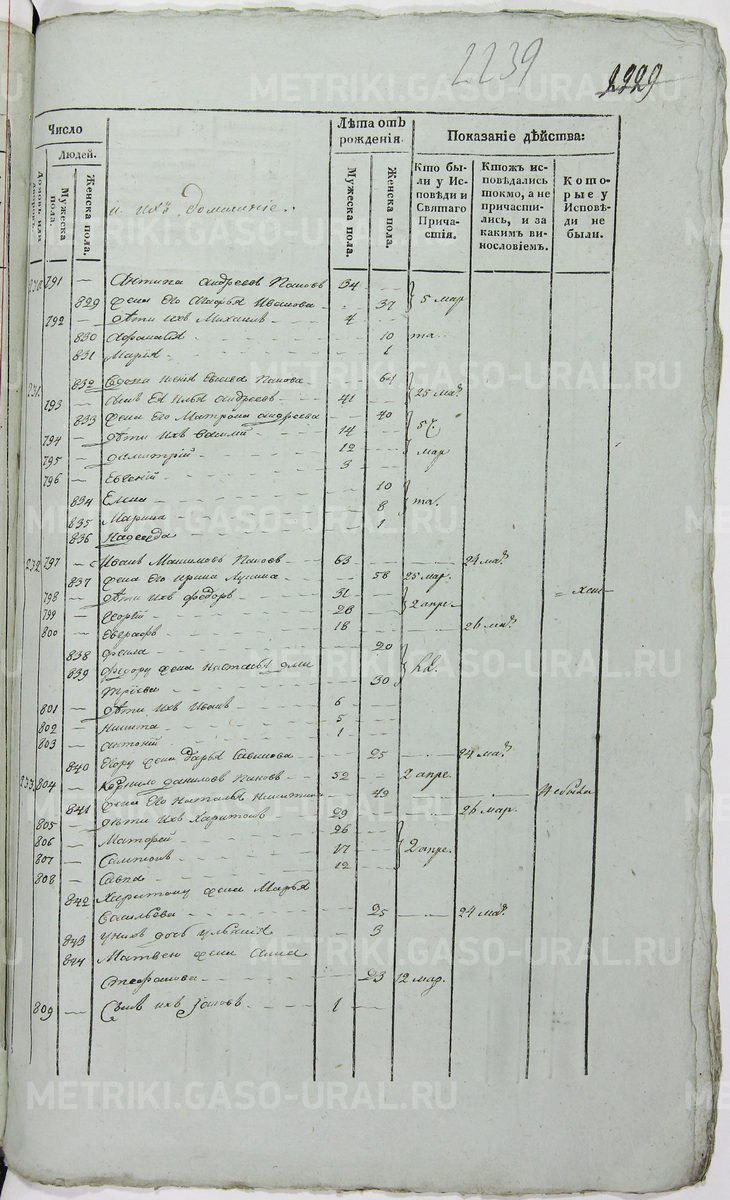 2239
2229
Число
Людей.
Домовъ или дворовъ.
Мужеска пола.
Женска пола.
и ихъ домашніе.
Лѣта отъ рожденія.
Мужеска пола.
Женска пола.
Показаніе дѣйства:
Кто были у Исповѣди и Святаго Причастія.
Ктожъ исповѣдались токмо, а не причастились, и за какимъ винословіемъ.
Которые у Исповѣди не были.
791 — Антипа Андреевъ 34
829 жена его Марья Иванова 37 5 мар
792 — дѣти ихъ Михаилъ 4
830 10
831 Марья 1
231 832 Вдова 61 25 мар.
793 — сынъ ея Илья Андреевъ 41
833 жена его Матрона Андреева 40
794 — дѣти ихъ Василій 14
795 — Димитрій 12 мар
796 — Евгеній 3
834 Елена 10
835 Марина 8
836 Надежда 1
232 797 — Иванъ Максимовъ 63 24 мар.
837 жена его Ирина 58 25 мар.
798 — дѣти ихъ Федоръ 31
799 — Георгій 28 2 апре.
800 — 18 26 мар.
838 20
839 Федору жена Настасья Дмитріева 30
801 — дѣти ихъ Иванъ 6
802 — Никита 5
803 — Антоній 1
840 Егору жена Дарья Савинова 25 24 мар.
233 804 — Корнило Даниловъ 52 2 апре.
841 жена его Наталья Никитина 49
805 — дѣти ихъ Харитонъ 29 26 мар.
806 — Матфей 26
807 — Сампсонъ 17 2 апре.
808 — Савва 12
842 Харитону жена Марья
Васильева 25 24 мар.
843 у нихъ дочь 3
844 Матвею жена Анна
23 12 мар.
809 — Сынъ ихъ 1
METRIKI.GASO-URAL.RU
METRIKI.GASO-URAL.RU
METRIKI.GASO-URAL.RU
METRIKI.GASO-URAL.RU
METRIKI.GASO-URAL.RU
METRIKI.GASO-URAL.RU
METRIKI.GASO-URAL.RU
METRIKI.GASO-URAL.RU